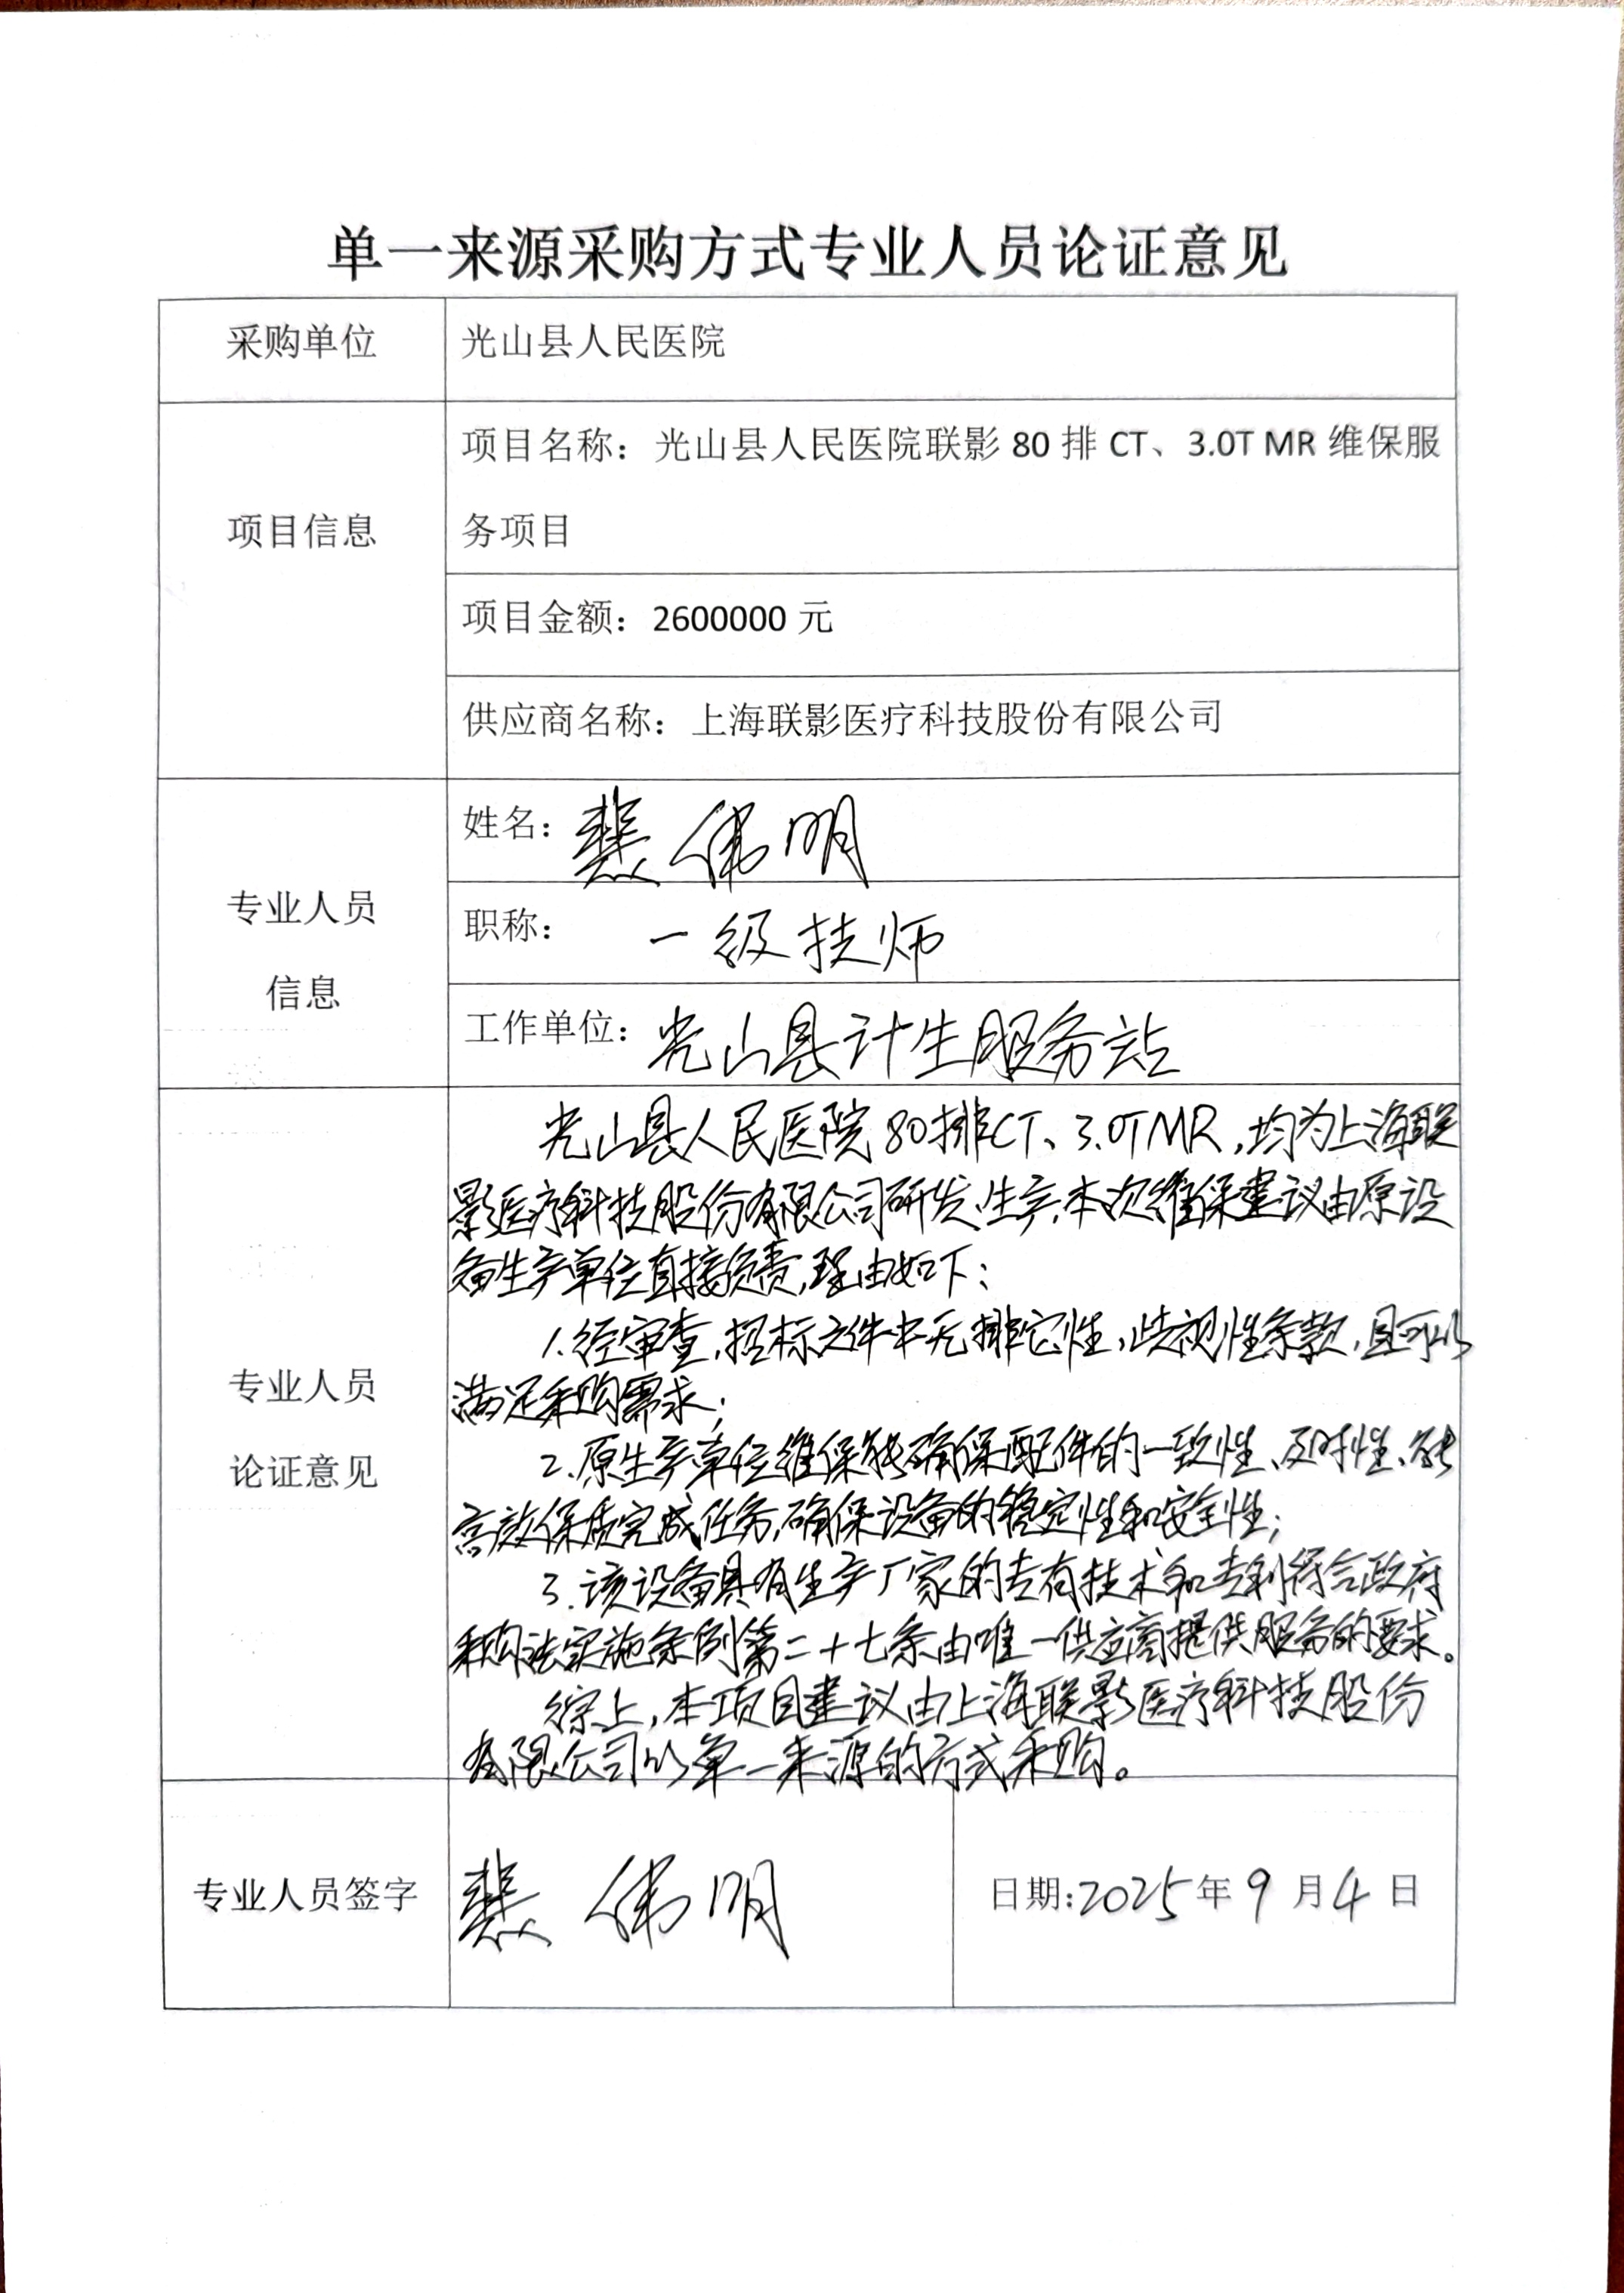 单一来源采购方式专业人员论证意见
采购单位
光山县人民医院
项目信息
项目名称：光山县人民医院联影 80 排 CT、3.0T MR 维保服
务项目
项目金额：2600000 元
供应商名称：上海联影医疗科技股份有限公司
专业人员
信息
姓名：伟明
职称：一级技师
工作单位：光山县计生服务站
专业人员
论证意见
光山县人民医院80排CT、3.0TMR,均为上海联
影医疗科技股份有限公司研发、生产,本次维保建议由原设
备生产单位直接负责,理由如下：
1.经审查,招标文件中无排它性,歧视性条款,且可以
满足采购需求；
2.原生产单位维保能确保配件的一致性、及时性、能
高效保质完成任务,确保设备的稳定性和安全性；
3.该设备具有生产厂家的专有技术和专利符合政府
采购法实施条例第二十七条由唯一供应商提供服务的要求。
综上,本项目建议由上海联影医疗科技股份
有限公司以单一来源的方式采购。
专业人员签字
伟明
日期:2025年9月4日